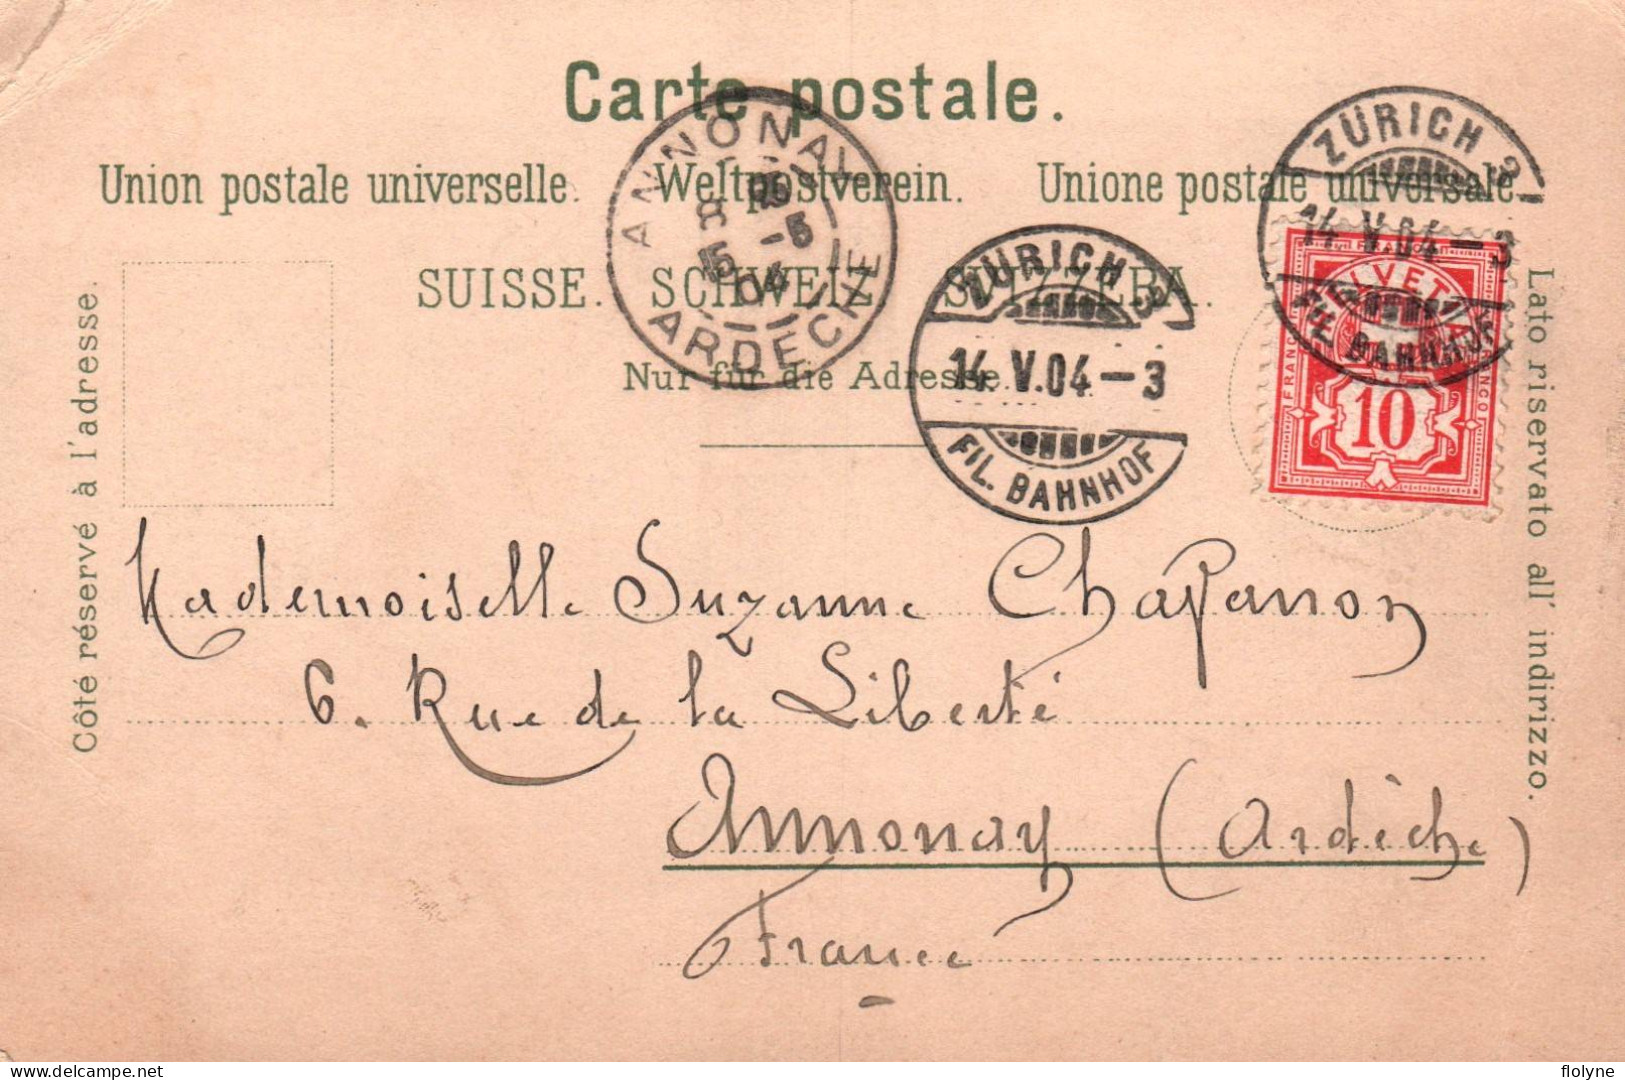 Carte postale.
Union postale universelle. Weltpostverein. Unione postale universale.
SUISSE. SCHWEIZ. SVIZZERA.
Nur für die Adresse.
Côté réservé à l'adresse.
Lato riservato all' indirizzo.
ANNONAY
ARDECHE
ZÜRICH 3
14. V.04 – 3
FIL. BAHNHOF
ZÜRICH 3
14. V.04 – 3
FIL. BAHNHOF
FRANCO
HELVETIA
FRANCO
FRANCO
10
Mademoiselle Suzanne Chapanon
6. Rue de la Liberté
Annonay (Ardèche)
France
delcampe.net
flolyne